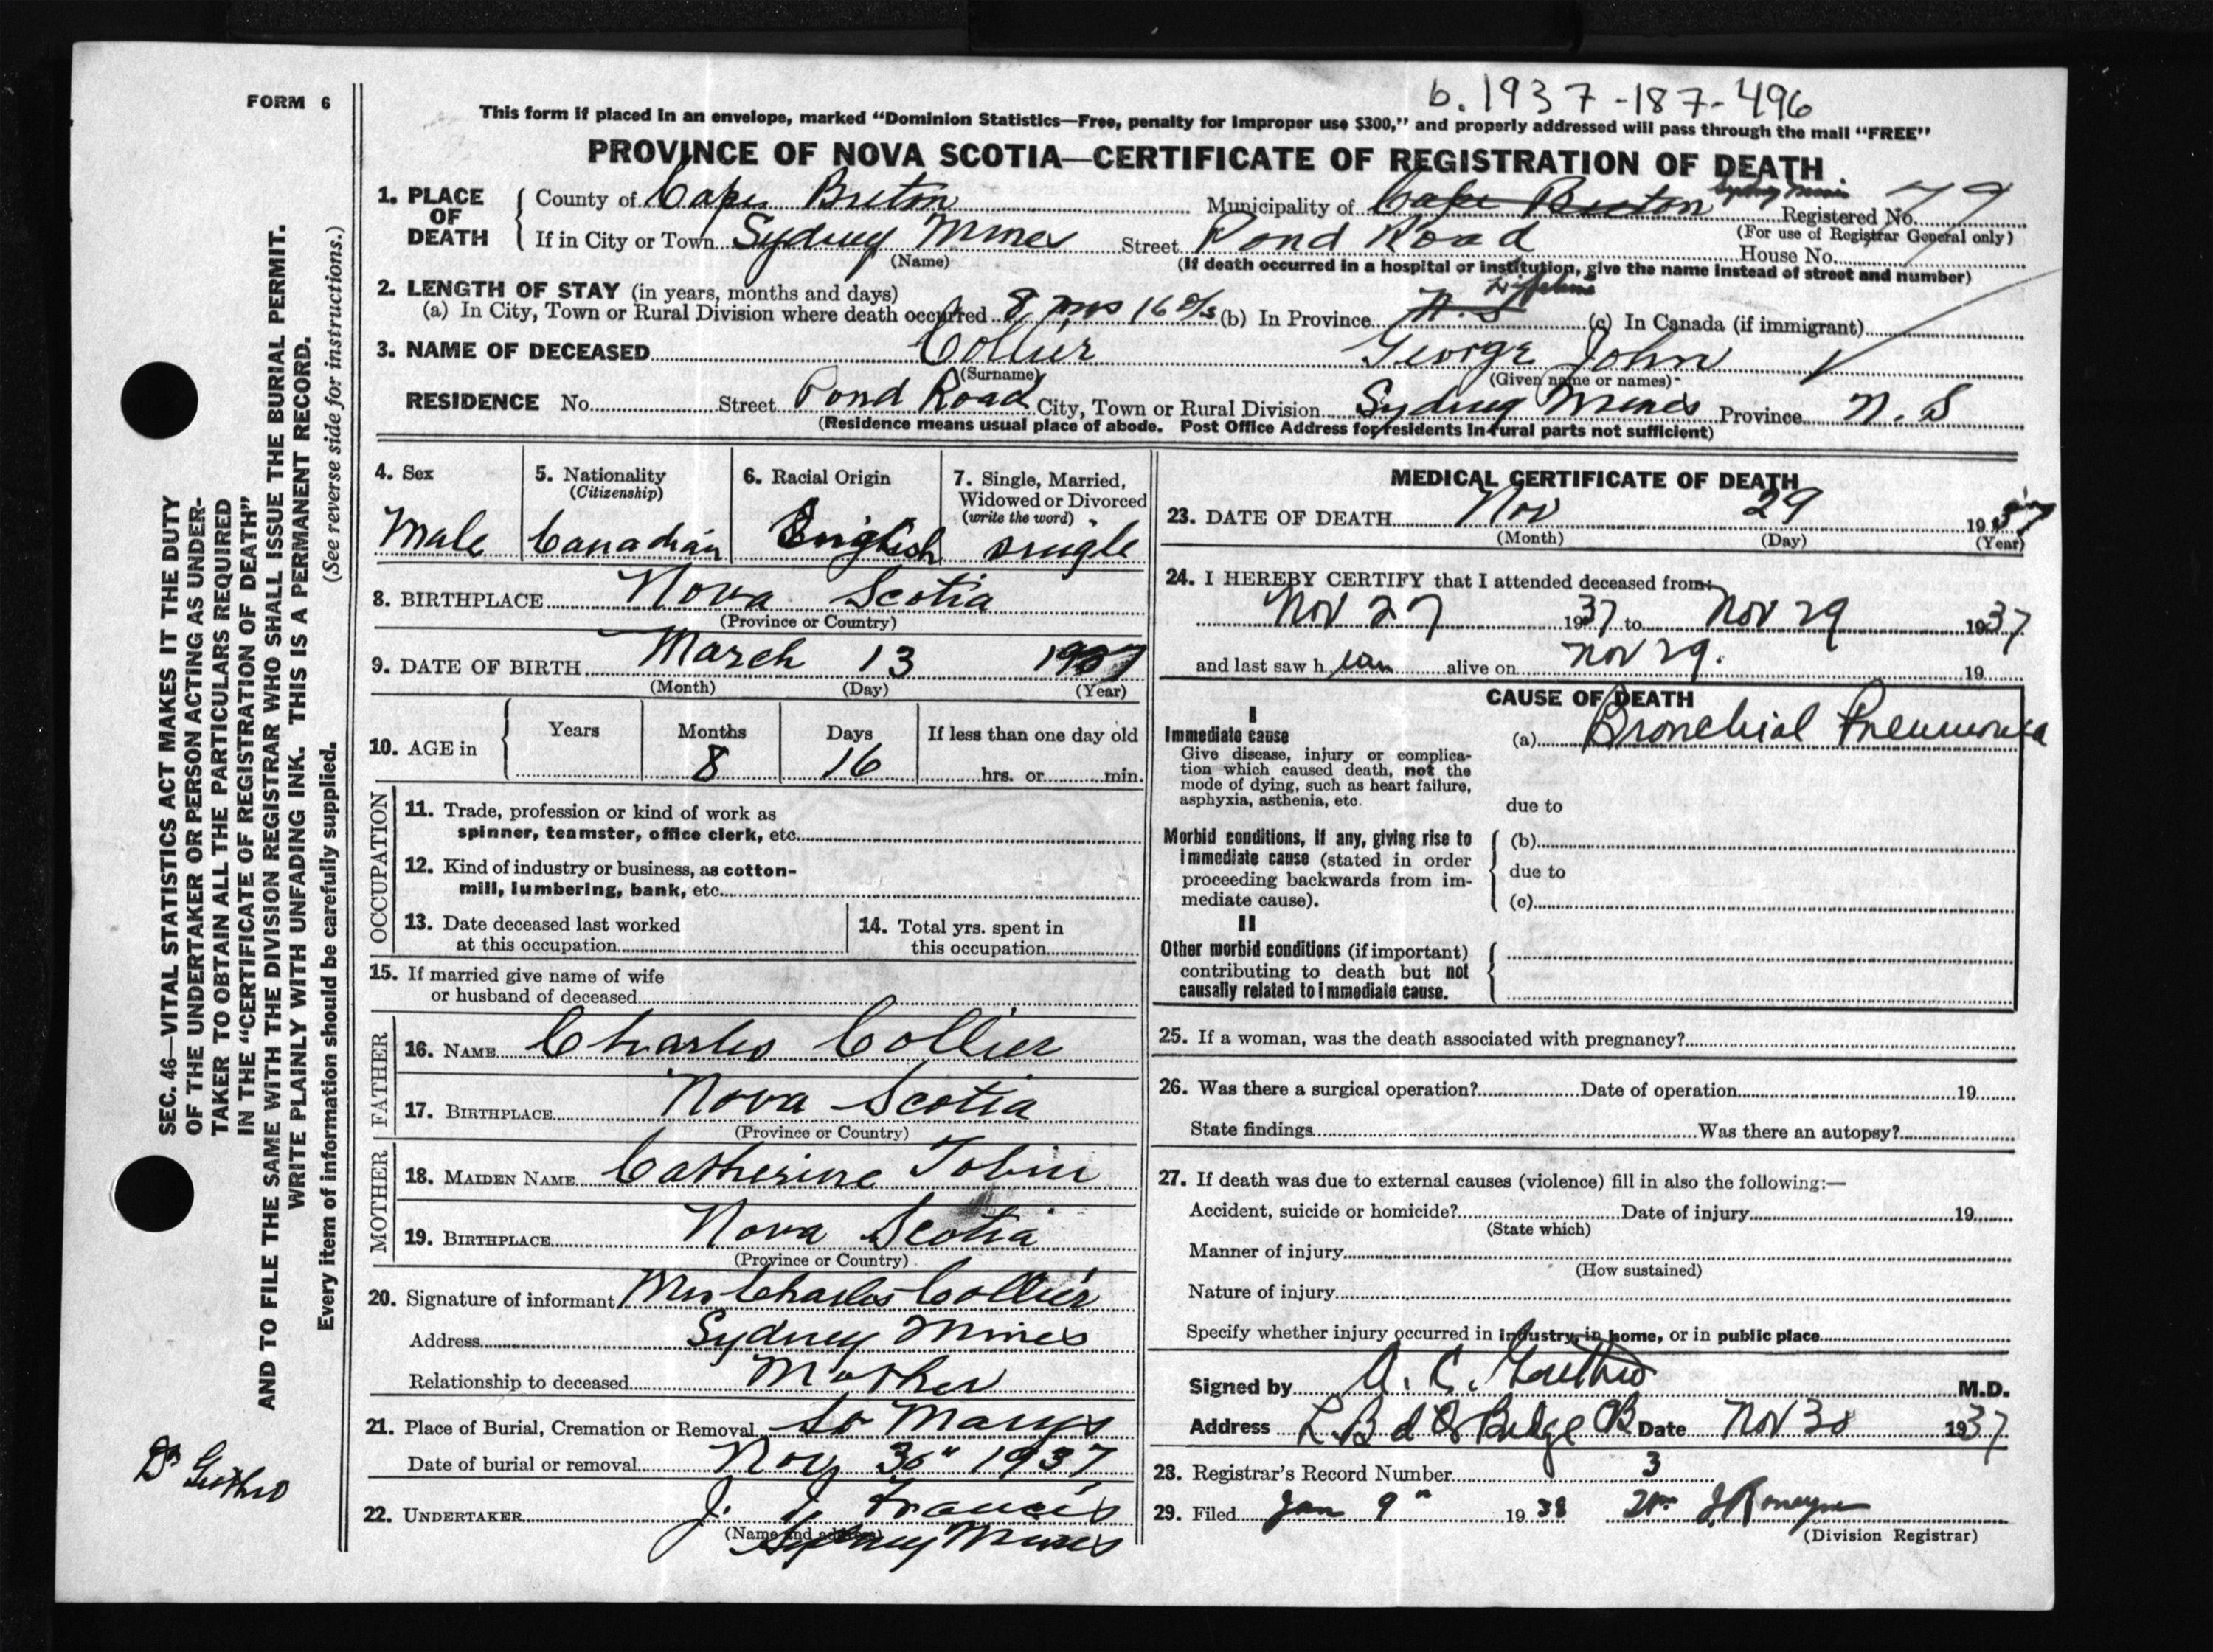 FORM 6
b. 1937-187-496
This form if placed in an envelope, marked "Dominion Statistics—Free, penalty for improper use $300," and properly addressed will pass through the mail "FREE"
PROVINCE OF NOVA SCOTIA—CERTIFICATE OF REGISTRATION OF DEATH
1. PLACE OF DEATH
County of Cape Breton Municipality of Cape Breton Sydney Mines Registered No. 79
(For use of Registrar General only)
If in City or Town Sydney Mines Street Pond Road House No.
(Name) (If death occurred in a hospital or institution, give the name instead of street and number)
2. LENGTH OF STAY (in years, months and days)
(a) In City, Town or Rural Division where death occurred 8 mos 16 d/s (b) In Province N.S Lifetime (c) In Canada (if immigrant)
3. NAME OF DECEASED Collier George John
(Surname) (Given name or names)
RESIDENCE No. Street Pond Road City, Town or Rural Division Sydney Mines Province N.S
(Residence means usual place of abode. Post Office Address for residents in rural parts not sufficient)
4. Sex
Male
5. Nationality
(Citizenship)
Canadian
6. Racial Origin
English
7. Single, Married,
Widowed or Divorced
(write the word)
single
8. BIRTHPLACE Nova Scotia
(Province or Country)
9. DATE OF BIRTH March 13 1937
(Month) (Day) (Year)
10. AGE in
Years Months Days If less than one day old
8 16 hrs. or min.
OCCUPATION
11. Trade, profession or kind of work as
spinner, teamster, office clerk, etc.
12. Kind of industry or business, as cotton-
mill, lumbering, bank, etc.
13. Date deceased last worked
at this occupation
14. Total yrs. spent in
this occupation
15. If married give name of wife
or husband of deceased
FATHER
16. NAME Charles Collier
17. BIRTHPLACE Nova Scotia
(Province or Country)
MOTHER
18. MAIDEN NAME Catherine Tobin
19. BIRTHPLACE Nova Scotia
(Province or Country)
20. Signature of informant Mrs Charles Collier
Address Sydney Mines
Relationship to deceased Mother
21. Place of Burial, Cremation or Removal St Marys
Date of burial or removal Nov 30" 1937
22. UNDERTAKER J. J. Francis
(Name and address)
Sydney Mines
MEDICAL CERTIFICATE OF DEATH
23. DATE OF DEATH Nov 29 1937
(Month) (Day) (Year)
24. I HEREBY CERTIFY that I attended deceased from:
Nov 27 1937 to Nov 29 1937
and last saw h im alive on Nov 29. 19
CAUSE OF DEATH
I
Immediate cause
Give disease, injury or complica-
tion which caused death, not the
mode of dying, such as heart failure,
asphyxia, asthenia, etc.
(a) Bronchial Pneumonia
due to
Morbid conditions, if any, giving rise to
immediate cause (stated in order
proceeding backwards from im-
mediate cause).
(b)
due to
(c)
II
Other morbid conditions (if important)
contributing to death but not
causally related to immediate cause.
25. If a woman, was the death associated with pregnancy?
26. Was there a surgical operation? Date of operation 19
State findings Was there an autopsy?
27. If death was due to external causes (violence) fill in also the following:—
Accident, suicide or homicide? Date of injury 19
(State which)
Manner of injury
(How sustained)
Nature of injury
Specify whether injury occurred in industry, in home, or in public place
Signed by A. C. M.D.
Address Date Nov 30 1937
28. Registrar's Record Number 3
29. Filed Jan 9" 1938
(Division Registrar)
SEC. 46—VITAL STATISTICS ACT MAKES IT THE DUTY
OF THE UNDERTAKER OR PERSON ACTING AS UNDER-
TAKER TO OBTAIN ALL THE PARTICULARS REQUIRED
IN THE "CERTIFICATE OF REGISTRATION OF DEATH"
AND TO FILE THE SAME WITH THE DIVISION REGISTRAR WHO SHALL ISSUE THE BURIAL PERMIT.
WRITE PLAINLY WITH UNFADING INK. THIS IS A PERMANENT RECORD.
Every item of information should be carefully supplied. (See reverse side for instructions.)
Dr